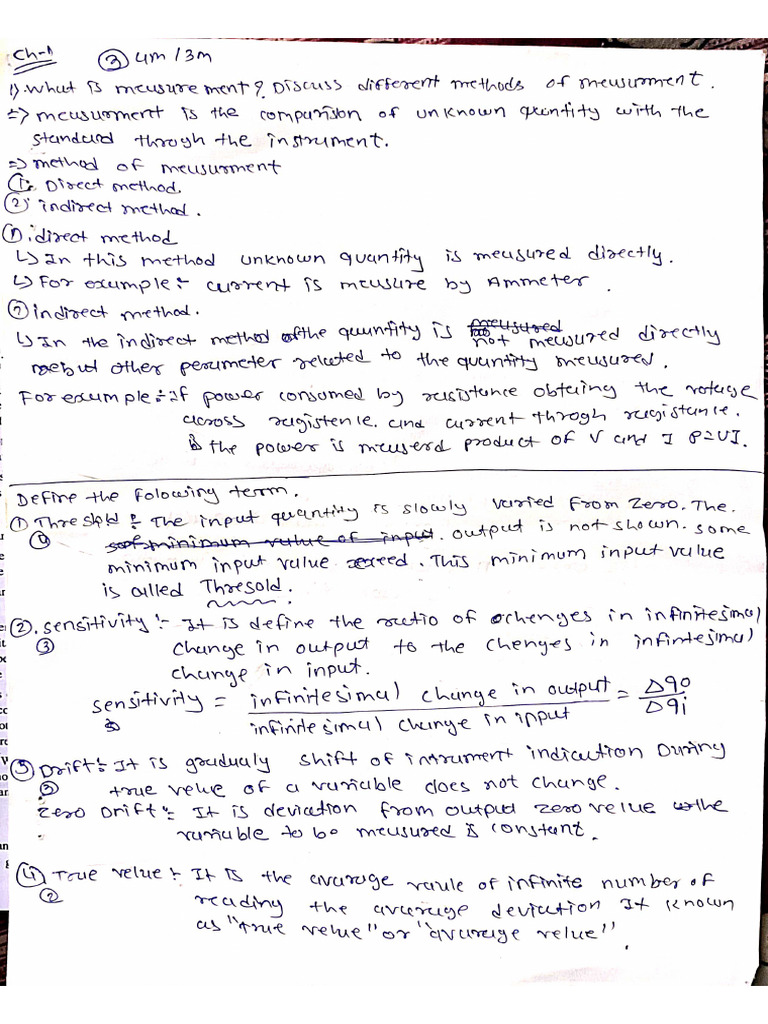 Ch-1 ③ 4m / 3m
1) What is measurement? Discuss different methods of measurment.
=> measurment is the comparision of unknown quentity with the
standard through the instrument.
=> method of measurment
①. Direct method.
②. indirect method.
①. direct method
↳ In this method unknown quantity is measured directly.
↳ For example :- current is measure by Ammeter.
② indirect method.
↳ In the indirect method of the quantity is not measured directly
but other perameter releated to the quantity measured.
For example :- If power consumed by resistence obtaing the votage
across registence. and current throgh registance.
the power is meauserd product of V and I P=VI.
Define the folowing term.
① Thresold :- The input quantity is slowly varied from zero. The
④ output is not shown. some
minimum input value exceed. This minimum input value
is called Thresold.
②. sensitivity :- It is define the ratio of chenges in infinitesimal
③ change in output to the chenges in infinitesimal
change in input.
sensitivity = infinitesimal change in output / infinitesimal change in input = Δqo / Δqi
③ Drift :- It is gradualy shift of intrument indication During
② true velue of a variable does not change.
Zero Drift :- It is deviation from output zero velue the
variable to be measured is constant.
④ True velue :- It is the avarage vaule of infinite number of
② reading the avarage deviation It known
as "true velue" or "avarage velue".